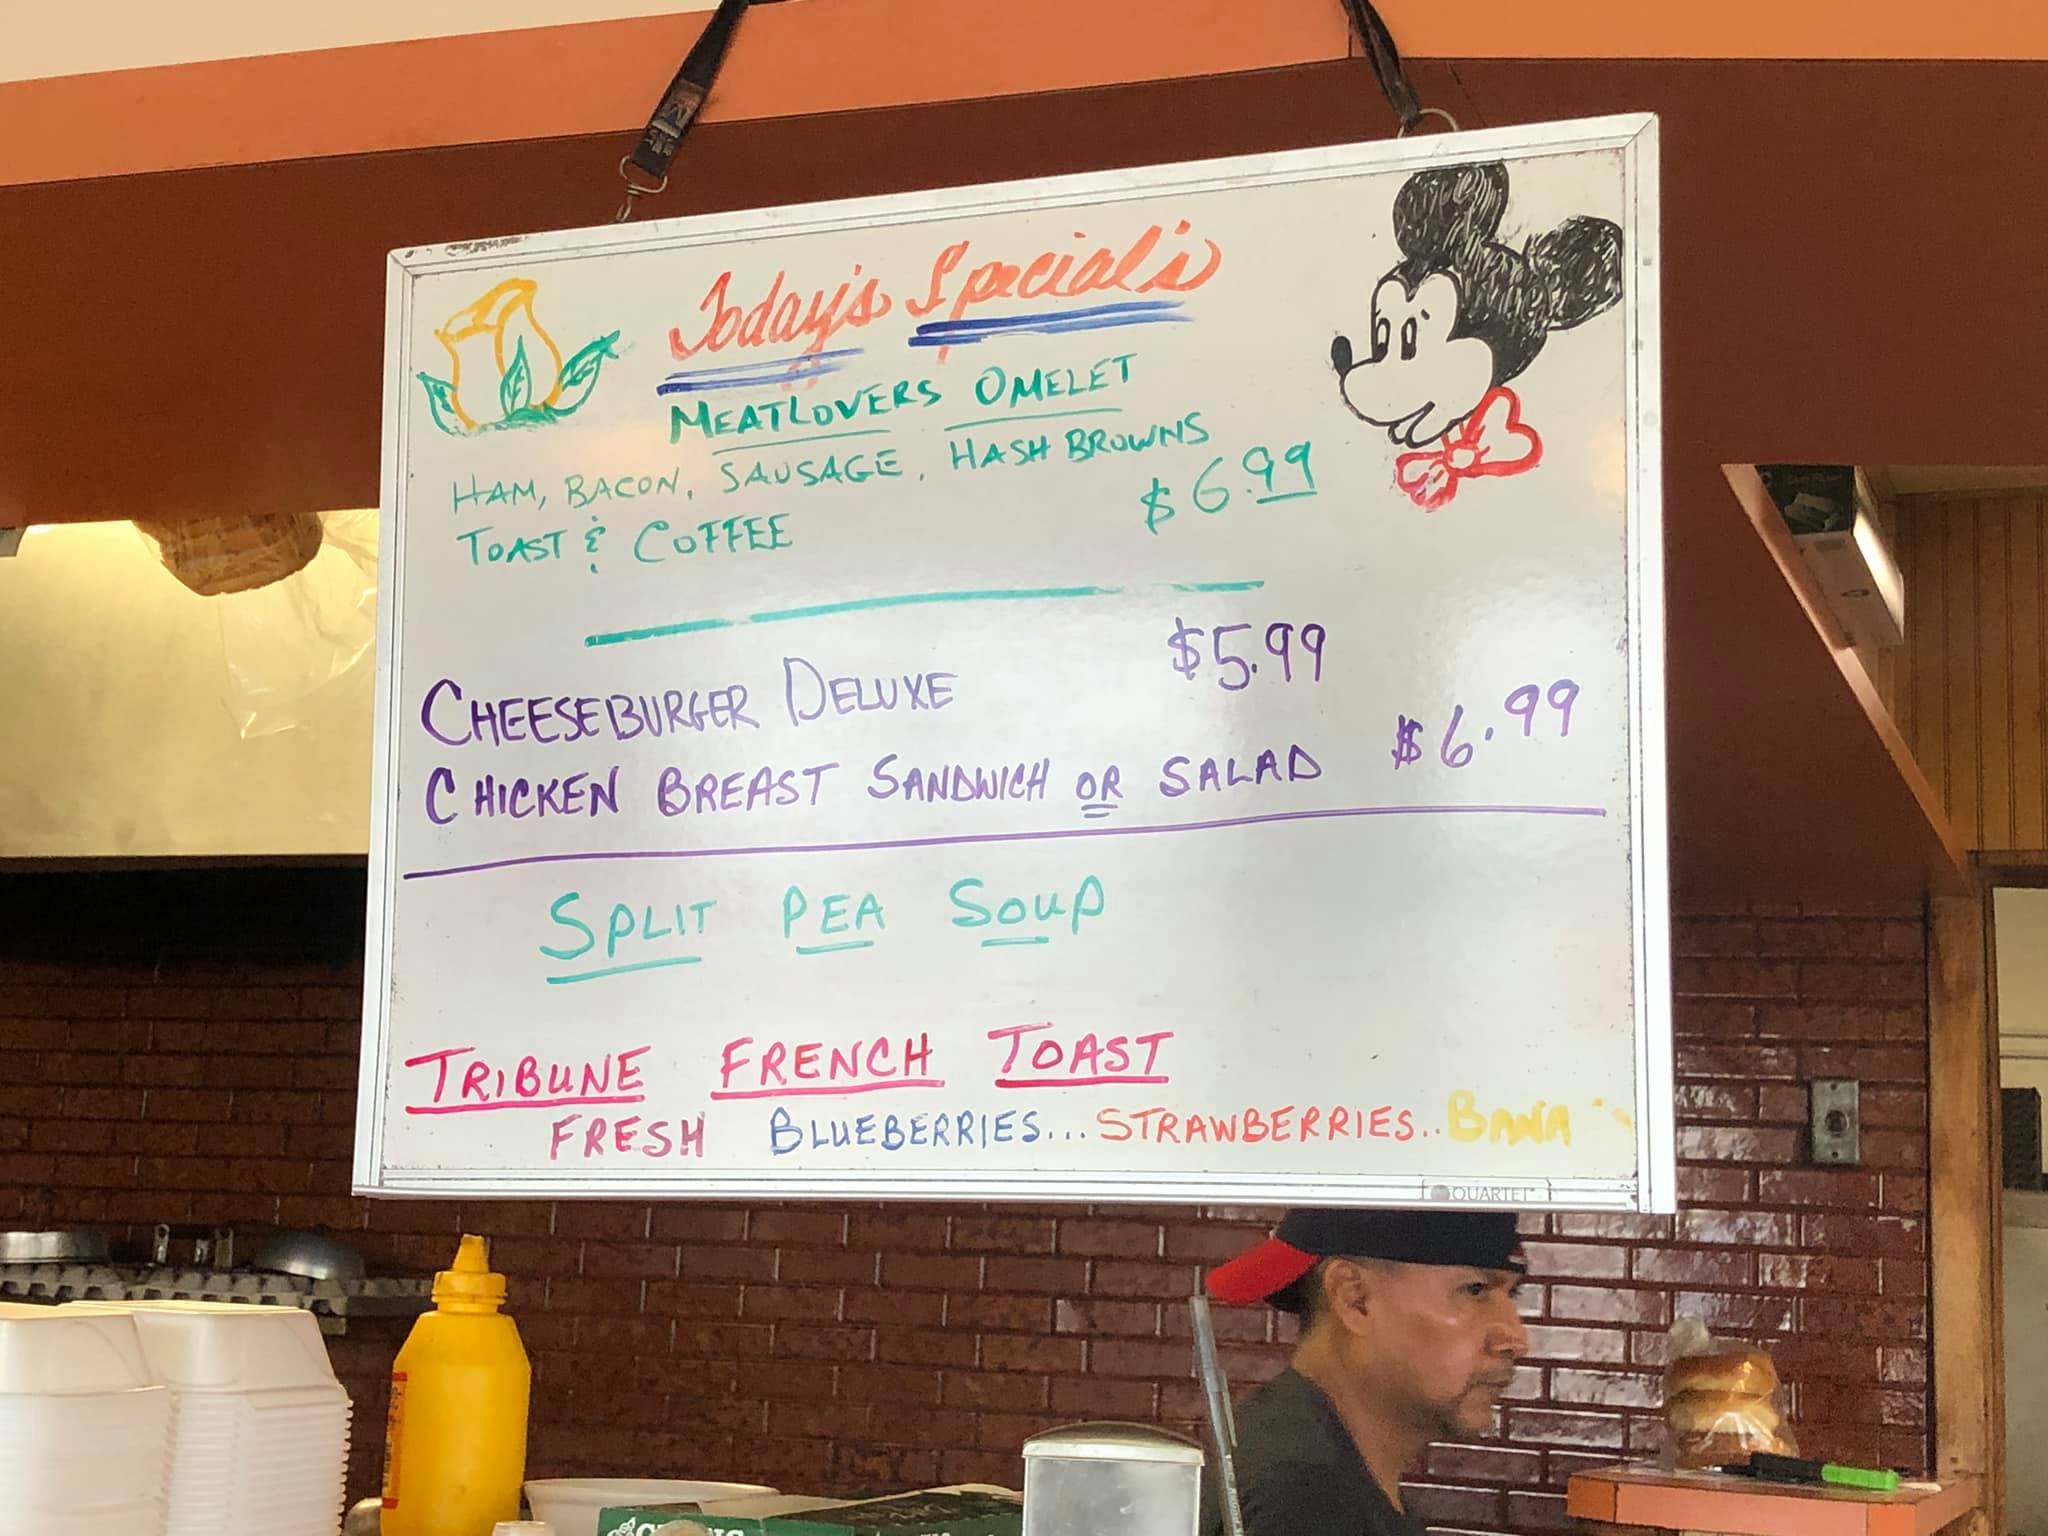 Today's Special's
MEATLOVERS OMELET
HAM, BACON, SAUSAGE, HASH BROWNS
TOAST & COFFEE $6.99
CHEESEBURGER DELUXE $5.99
CHICKEN BREAST SANDWICH OR SALAD $6.99
SPLIT PEA SOUP
TRIBUNE FRENCH TOAST
FRESH BLUEBERRIES... STRAWBERRIES.. BANA
QUARTET